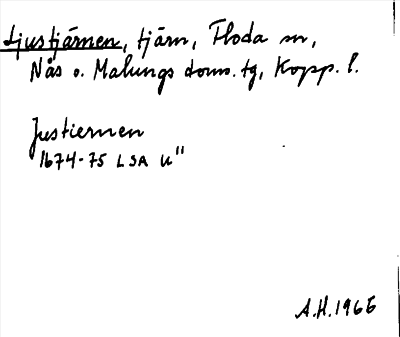 Ljustjärnen, tjärn, Floda sn,
Nås o. Malungs doms. tg, Kopp. l.
Justiernen
1674-75 LSA u"
A.H. 1965